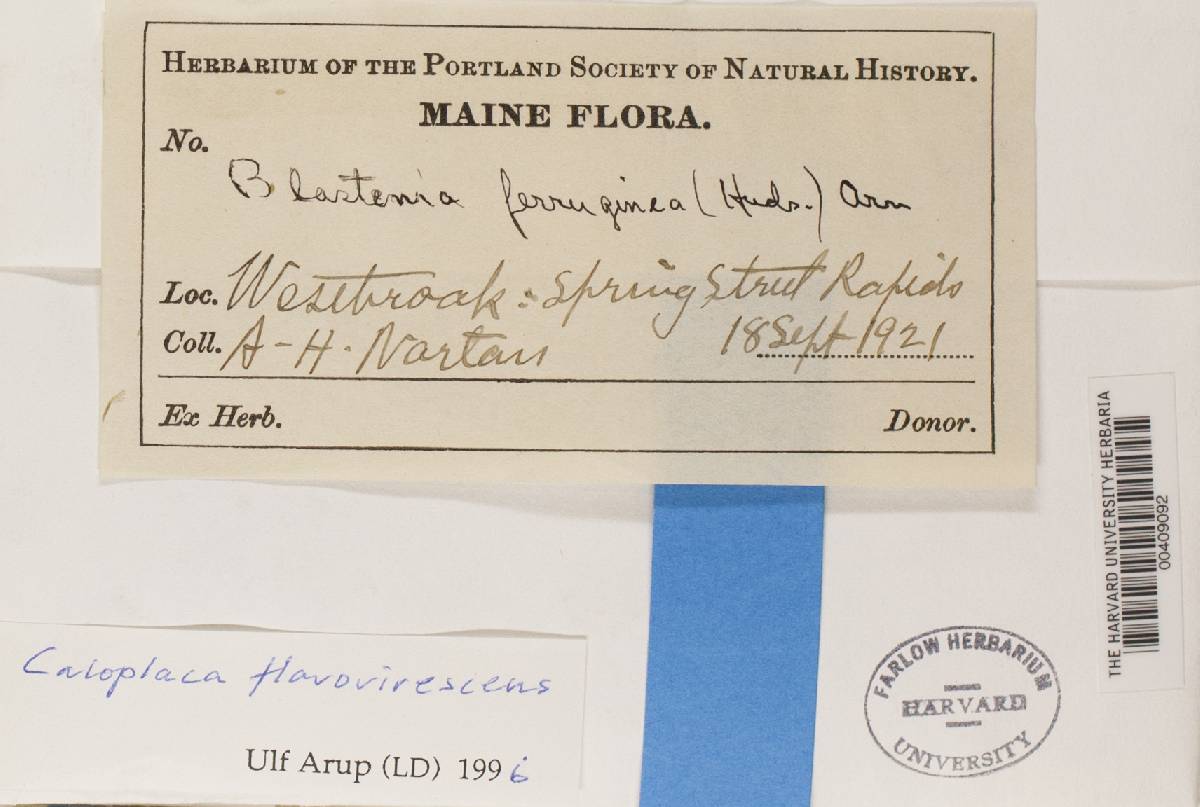 HERBARIUM OF THE PORTLAND SOCIETY OF NATURAL HISTORY.
MAINE FLORA.
No.
Blastenia ferruginea (Huds.) Arn
Loc. Westbrook: Spring Street Rapids
Coll. A-H. Norton 18 Sept 1921
Ex Herb. Donor.
THE HARVARD UNIVERSITY HERBARIA
00409092
Caloplaca flavovirescens
Ulf Arup (LD) 1996
FARLOW HERBARIUM
HARVARD
UNIVERSITY